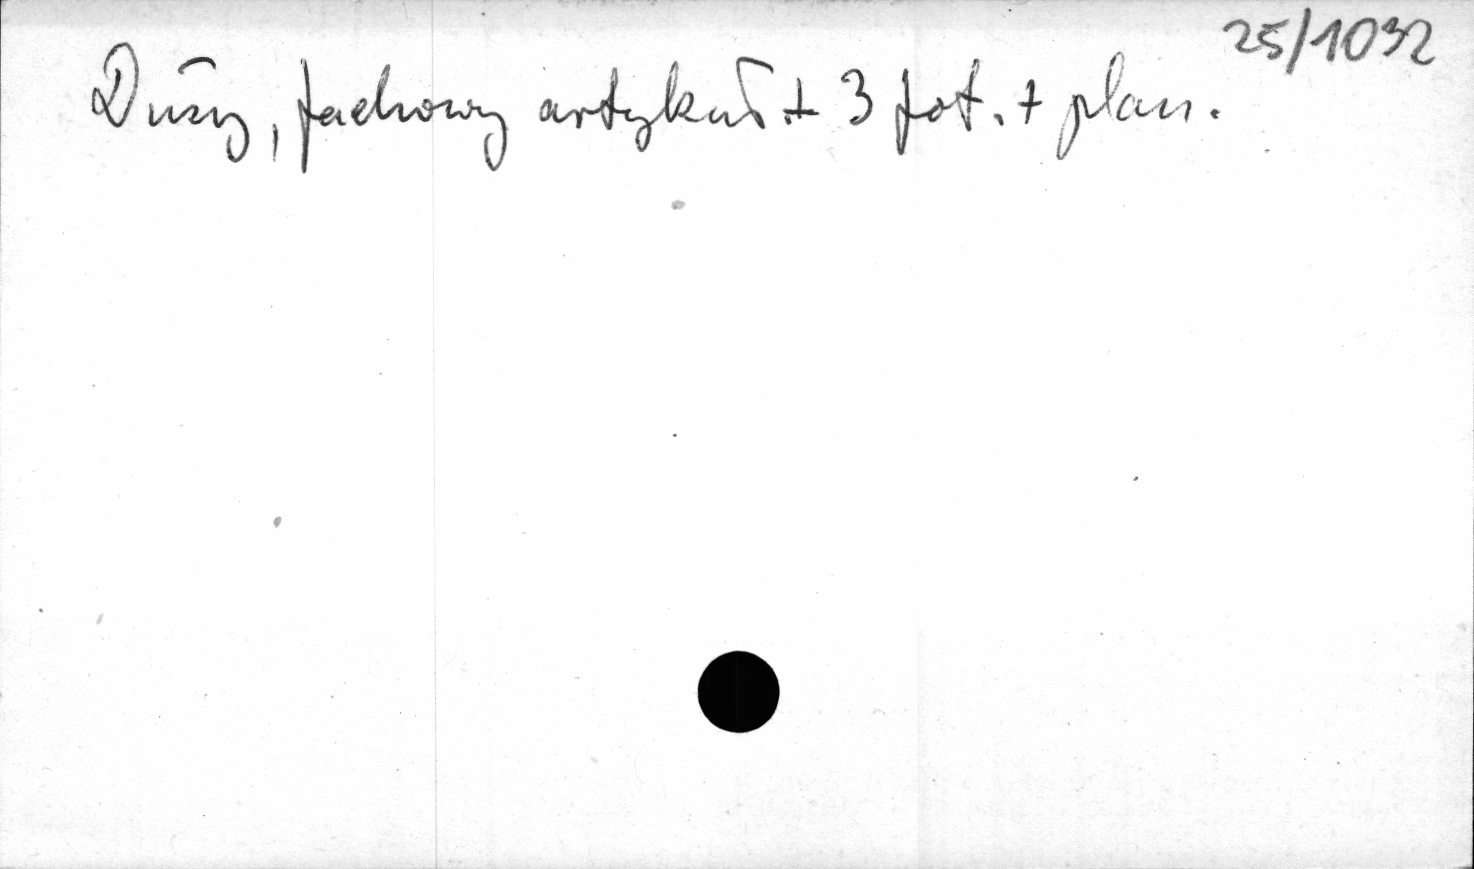 25/1032
Duży, fachowy artykuł + 3 fot. + plan.